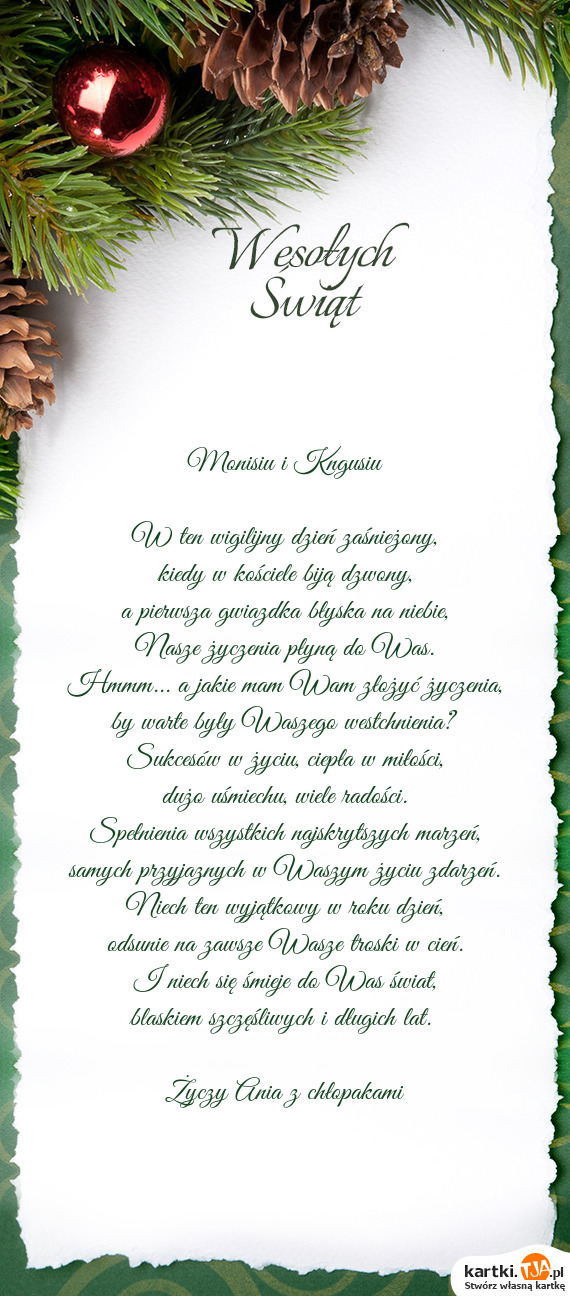 Wesołych
Świąt
Monisiu i Kngusiu
W ten wigilijny dzień zaśnieżony,
kiedy w kościele biją dzwony,
a pierwsza gwiazdka błyska na niebie,
Nasze życzenia płyną do Was.
Hmmm... a jakie mam Wam złożyć życzenia,
by warte były Waszego westchnienia?
Sukcesów w życiu, ciepła w miłości,
dużo uśmiechu, wiele radości.
Spełnienia wszystkich najskrytszych marzeń,
samych przyjaznych w Waszym życiu zdarzeń.
Niech ten wyjątkowy w roku dzień,
odsunie na zawsze Wasze troski w cień.
I niech się śmieje do Was świat,
blaskiem szczęśliwych i długich lat.
Życzy Ania z chłopakami
kartki.TJA.pl
Stwórz własną kartkę